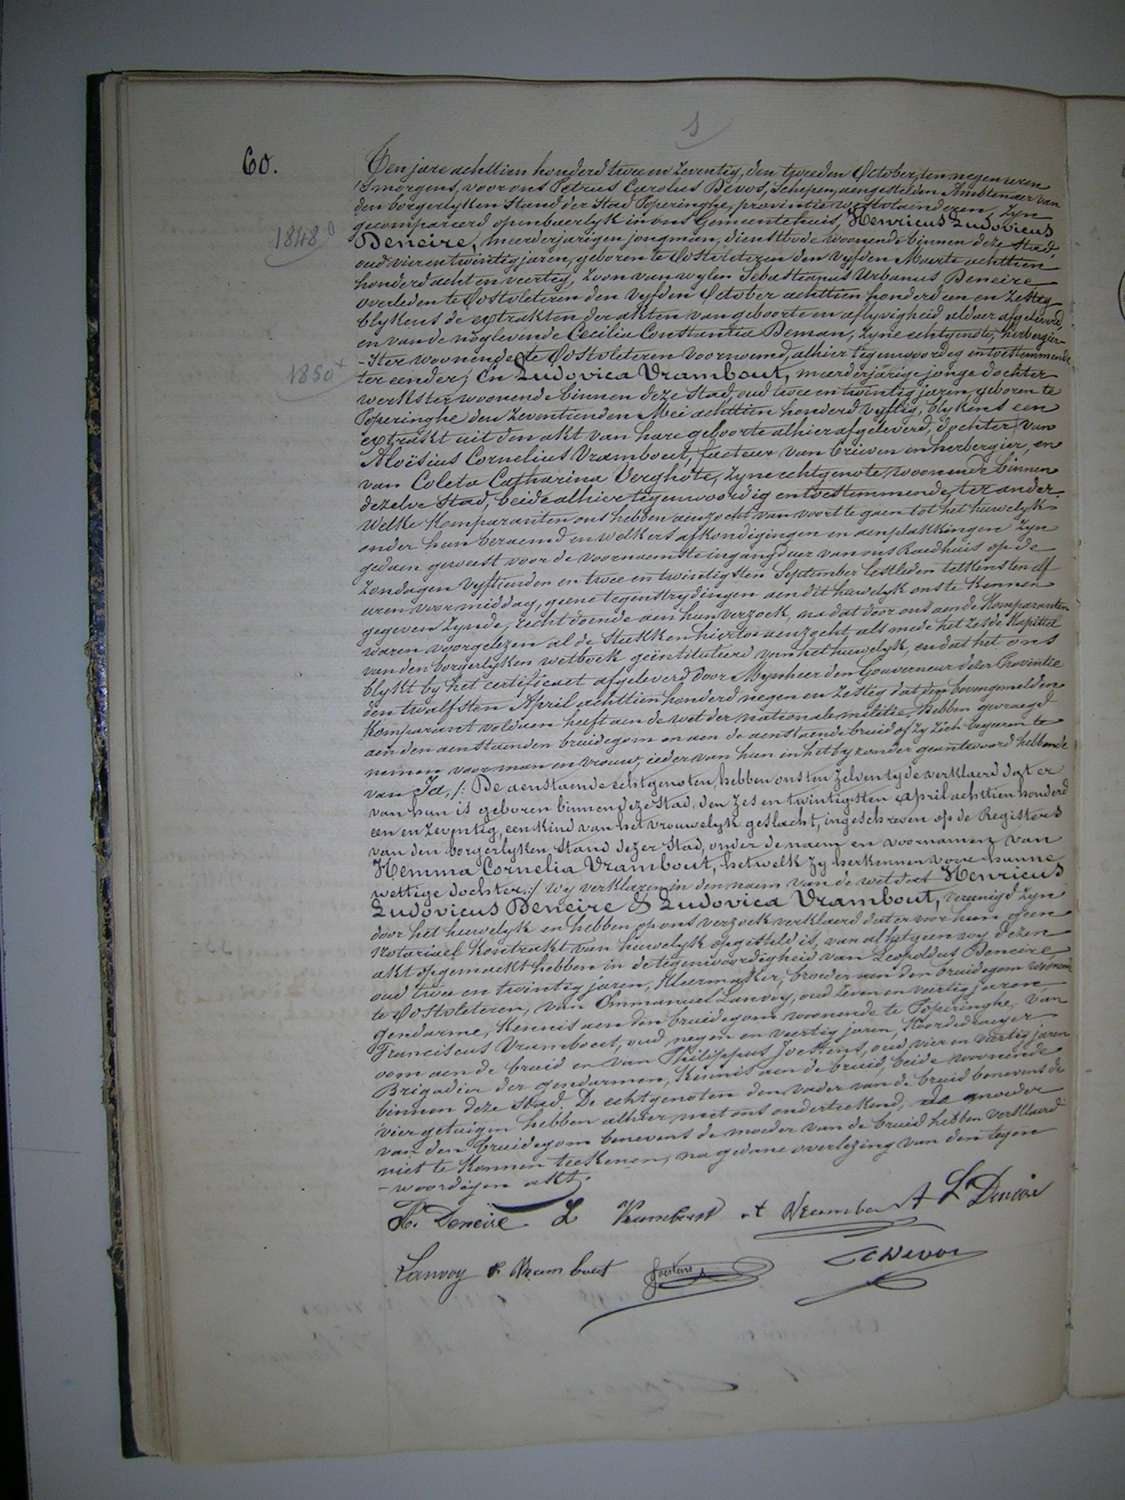 60.
Den jare achttien honderd twee en zeventig, den tweeden October, ten negen uren
's morgens, voor ons Petrus Carolus Devos, Schepen, aengestelden Ambtenaer van
den borgerlyken Stand der Stad Poperinghe, provintie westvlaenderen, Zyn
gecompareerd openbaerlyk in ons Gemeentehuis, Henricus Ludovicus
1848
Deneire, meerderjarigen jongman, dienstbode woonende binnen deze Stad,
oud vier en twintig jaren, geboren te Oostvleteren den vyfden Maerte achttien
honderd acht en veertig, Zoon van wylen Sebastianus Urbanus Deneire
overleden te Oostvleteren den vyfden October achttien honderd een en Zestig
blykens de extrakten der akten van geboorte en aflyvigheid aldaer afgeleverd,
en van de noglevende Cecilia Constantia Deman, Zyne echtgenote, herbergier-
-ster woonende te Oostvleteren voornoemd, alhier tegenwoordig en toestemmende
1850
ter eender; En Ludovica Vrambout, meerderjarige jonge dochter
werkster woonende binnen deze Stad, oud twee en twintig jaren, geboren te
Poperinghe den Zeventienden Mei achttien honderd vyftig, blykens een
extrakt uit den akt van hare geboorte alhier afgeleverd, dochter van
Aloïsius Cornelius Vrambout, facteur van brieven en herbergier, en
van Coleta Catharina Verghote, Zyne echtgenote, woonende binnen
dezelve Stad, beide alhier tegenwoordig en toestemmende, ter ander.
Welke Komparanten ons hebben aenzocht van voort te gaen tot het huwelyk
onder hun beraemd en welkers afkondigingen en aenplakkingen Zyn
gedaen geweest voor de voornaemste ingangdeur van ons Raedhuis op de
Zondagen vyftienden en twee en twintigsten September lestleden telkensten elf
uren voormiddag, geene tegenstrydingen aen dit huwelyk ons te Kennen
gegeven Zynde, recht doende aen hun verzoek, na dat door ons aen de Komparanten
waren voorgelezen al de Stukken hiertoe aenzocht, als mede het zesde Kapittel
van den borgerlyken wetboek geïntituleerd van het huwelyk, en dat het ons
blykt by het certificaet afgeleverd door Mynheer den Gouverneur dezer Provintie
den twalfsten April achttien honderd negen en Zestig dat den bovengemelden
Komparant voldaen heeft aen de wet der nationale militie, Hebben gevraegd
aen den aenstaenden bruidegom en aen de aenstaende bruid of zy Zich begaren te
nemen voor man en vrouw, ieder van hun in het byzonder geantwoord hebbende
van Ja, /: De aenstaende echtgenoten, hebben ons ten Zelven tyde verklaerd dat er
van hun is geboren binnen deze Stad, den zes en twintigsten April achttien honderd
een en Zeventig, een kind van het vrouwelyk geslacht, ingeschreven op de Registers
van den borgerlyken Stand dezer Stad, onder de naem en voornamen van
Hemma Cornelia Vrambout, hetwelk zy herkennen voor hunne
wettige dochter :/ Wy verklaren in den naem van de wet dat Henricus
Ludovicus Deneire & Ludovica Vrambout, vereenigd Zyn
door het huwelyk en hebben op ons verzoek verklaerd dat er voor hun geen
Notarieel Kontrakt van huwelyk opgesteld is, van al hetgeen wy dezen
akt opgemaekt hebben in de tegenwoordigheid van Leopoldus Deneire,
oud twee en twintig jaren, Kleermaker, broeder aen den bruidegom woonende
te Oostvleteren, van Emmanuel Lanvoy, oud Zeven en veertig jaren
gendarme, Kennis aen den bruidegom woonende te Poperinghe, van
Franciscus Vrambout, oud negen en veertig jaren, Koordedraeger
oom aen de bruid en van Philippus Joettens, oud vier en veertig jaren
Brigadier der gendarmen, Kennis aen de bruid, beide woonende
binnen deze Stad. De echtgenoten den vader van de bruid benevens de
vier getuigen hebben alhier met ons onderteekend, de moeder
van den bruidegom benevens de moeder van de bruid hebben verklaerd
niet te Konnen teekenen, na gedane overlezing van den tegen
-woordigen akt.
H. Deneire L Vrambout A Vrambout L Deneire
Lanvoy F Vrambout Joettens C Devos